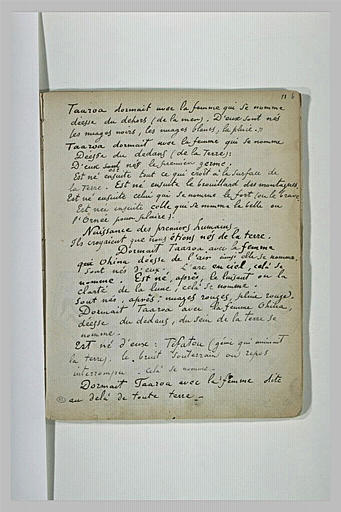 Taaroa dormait avec la femme qui se nomme
déesse du dehors (de la mer). D'eux sont nés
les nuages noirs, les nuages blancs, la pluie.
Taaroa dormait avec la femme qui se nomme
Deesse du dedans (de la Terre):
D'eux est né le premier germe.
Est né ensuite tout ce qui croît à la surface de
la terre. Est né ensuite le brouillard des montagnes
Est né ensuite celui qui se nomme le fort (ou le brave
Est née ensuite celle qui se nomme la belle ou
l'Ornée pour plaire).
Naissance des premiers humains
Ils croyaient que nous étions nés de la terre.
Dormait Taaroa avec la femme
qui Ohina déesse de l'air ainsi elle se nomme.
Sont nés d'eux. L'arc en ciel, cela se
nomme. Est né, après, le luisant ou la
clarté de la lune cela se nomme.
sont nés, après: nuages rouges, pluie rouge).
Dormait Taaroa avec la femme Ohina,
déesse du dedans, du sein de la terre se
nomme.
Est né d'eux: Téfatou (génie qui animait
la terre). le bruit souterrain ou repos
interrompu. Cela se nomme.
Dormait Taaroa avec la femme dite
au delà de toute terre_